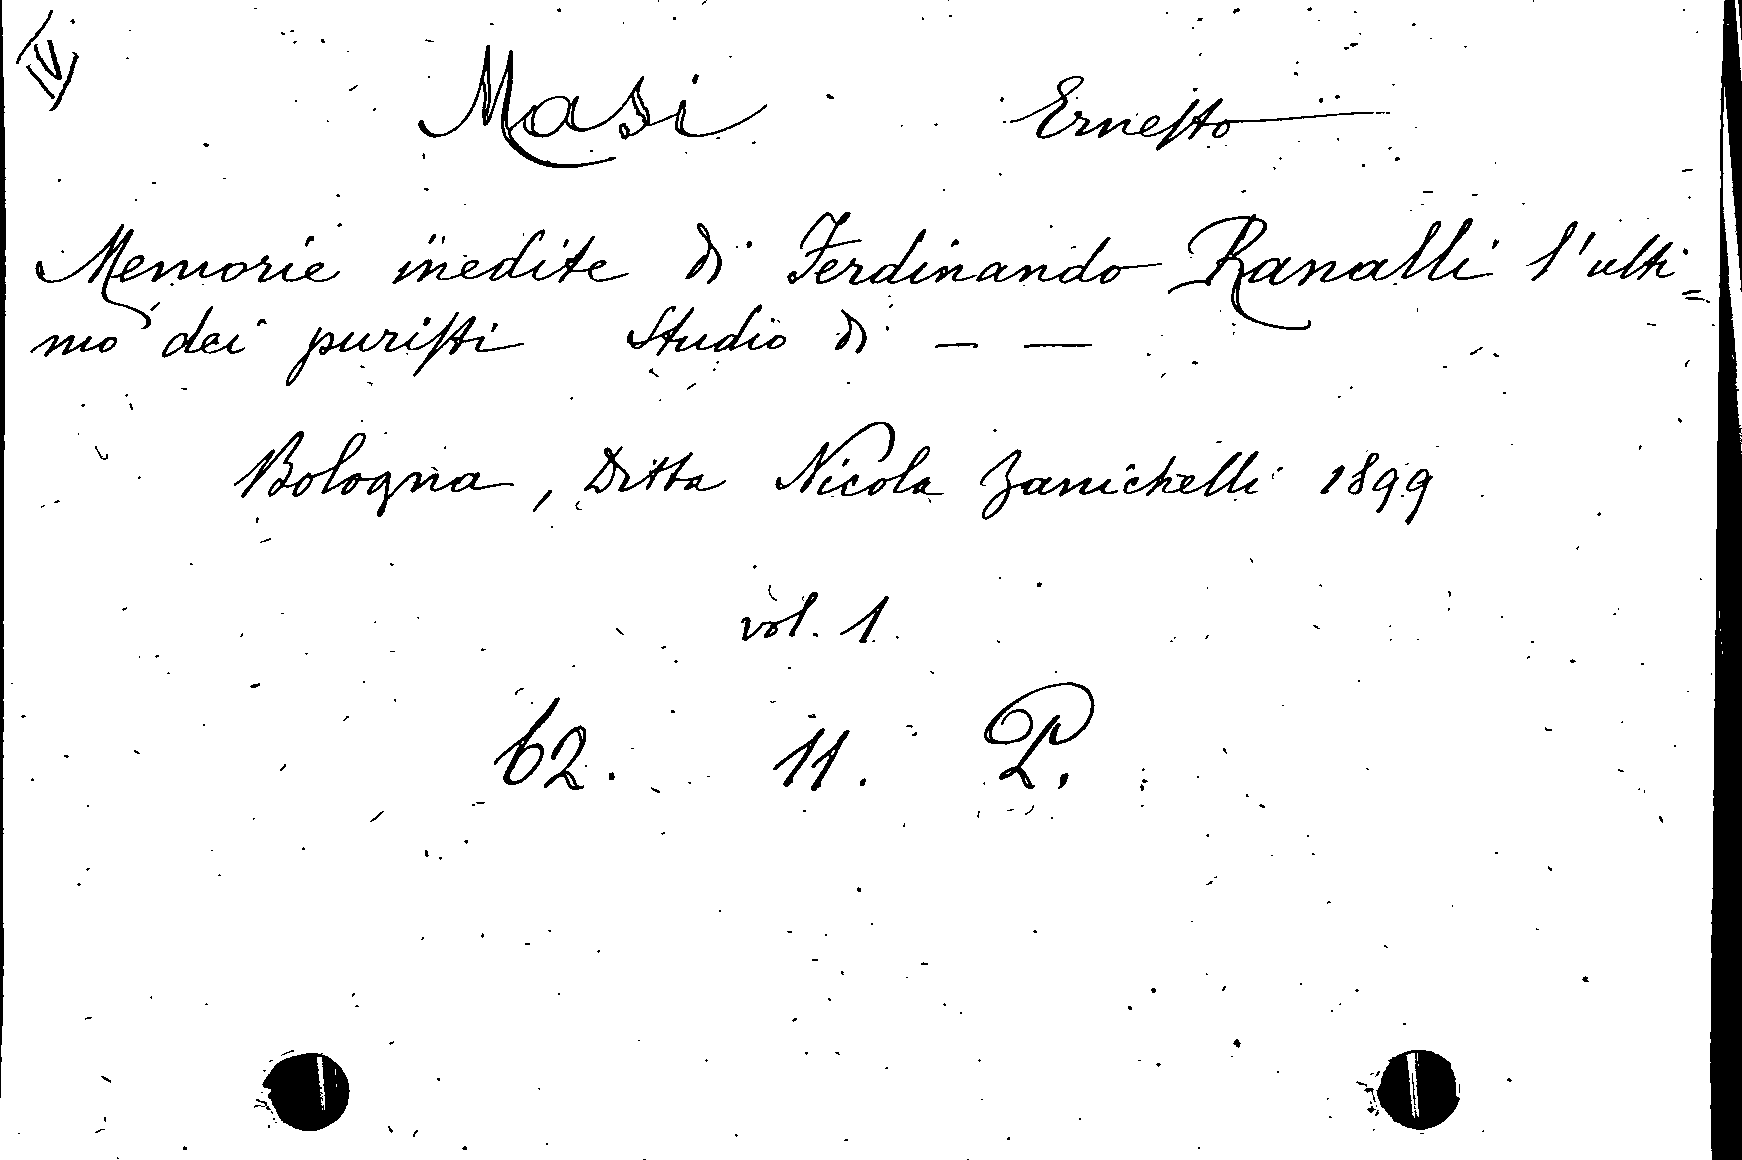 IV
Masi Ernesto
Memorie inedite di Ferdinando Ranalli l'ulti=
mo dei puristi Studio di — —
Bologna, Ditta Nicola Zanichelli 1899
vol. 1
62. 11. P.